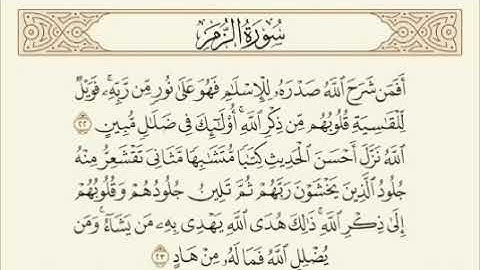 سُورَةُ الزُّمَرِ
أَفَمَن شَرَحَ ٱللَّهُ صَدْرَهُۥ لِلْإِسْلَٰمِ فَهُوَ عَلَىٰ نُورٍ مِّن رَّبِّهِۦ ۚ فَوَيْلٌ
لِّلْقَٰسِيَةِ قُلُوبُهُم مِّن ذِكْرِ ٱللَّهِ ۚ أُو۟لَٰٓئِكَ فِى ضَلَٰلٍ مُّبِينٍ ٢٢
ٱللَّهُ نَزَّلَ أَحْسَنَ ٱلْحَدِيثِ كِتَٰبًا مُّتَشَٰبِهًا مَّثَانِىَ تَقْشَعِرُّ مِنْهُ
جُلُودُ ٱلَّذِينَ يَخْشَوْنَ رَبَّهُمْ ثُمَّ تَلِينُ جُلُودُهُمْ وَقُلُوبُهُمْ
إِلَىٰ ذِكْرِ ٱللَّهِ ۚ ذَٰلِكَ هُدَى ٱللَّهِ يَهْدِى بِهِۦ مَن يَشَآءُ ۚ وَمَن
يُضْلِلِ ٱللَّهُ فَمَا لَهُۥ مِنْ هَادٍ ٢٣